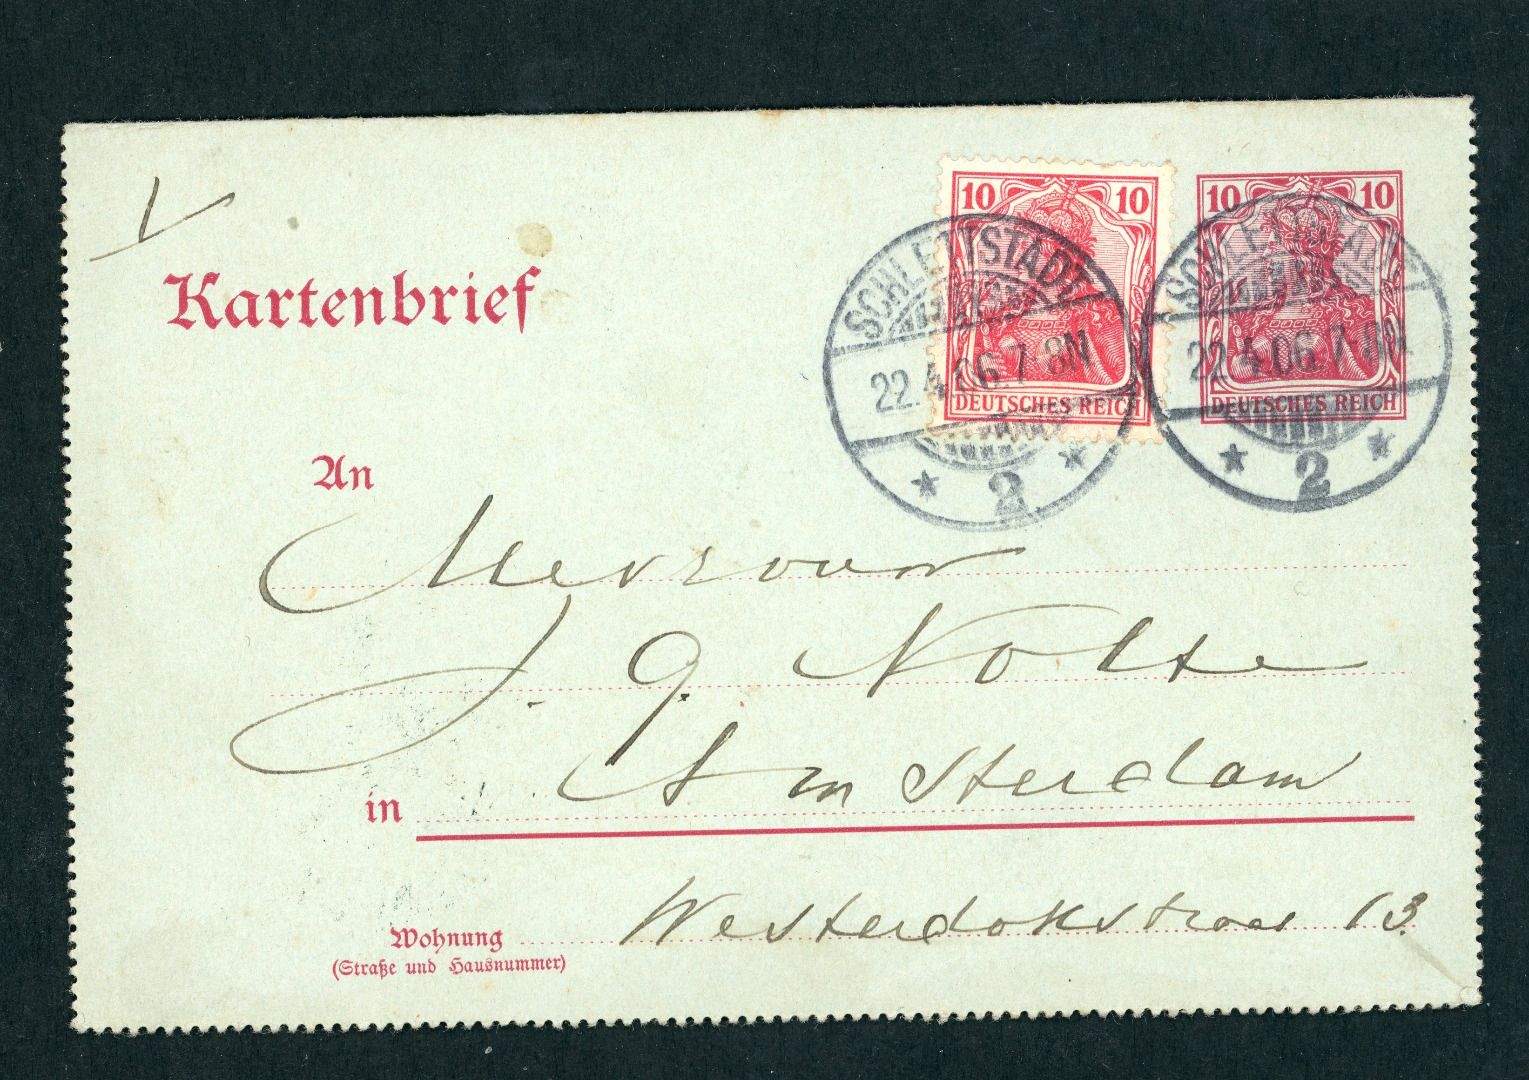 10 10
DEUTSCHES REICH
10 10
DEUTSCHES REICH
SCHLETTSTADT
22.4.06.7-8N
* 2 *
SCHLETTSTADT
22.4.06.7-8N
* 2 *
Kartenbrief
An
Mevrouw
J. G. Nolte
in Amsterdam
Wohnung Westerdokstraat 13.
(Straße und Hausnummer)